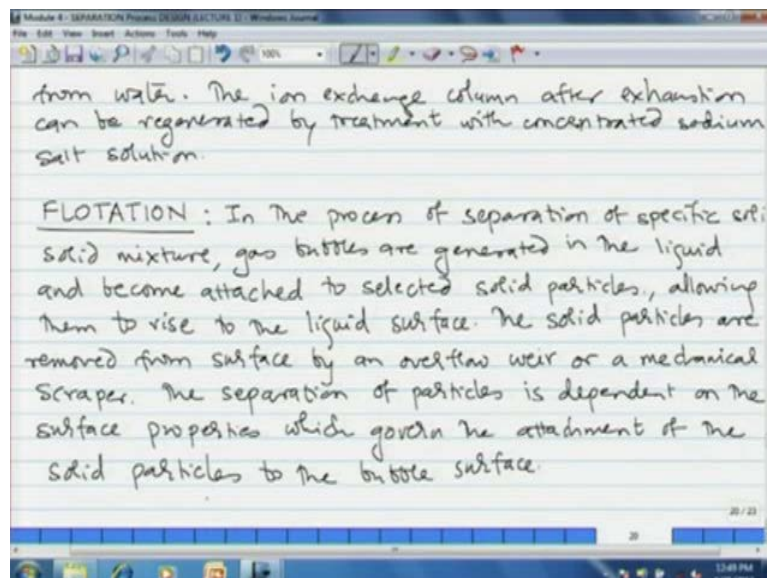 Module 4 - SEPARATION Process DESIGN (LECTURE 1) - Windows Journal
File Edit View Insert Actions Tools Help
100%
from water. The ion exchange column after exhaustion
can be regenerated by treatment with concentrated sodium
salt solution.
FLOTATION : In the process of separation of specific soli
solid mixture, gas bubbles are generated in the liquid
and become attached to selected solid particles, allowing
them to rise to the liquid surface. The solid particles are
removed from surface by an overflow weir or a mechanical
scraper. The separation of particles is dependent on the
surface properties which govern the attachment of the
solid particles to the bubble surface.
20 / 23
20
12:49 PM